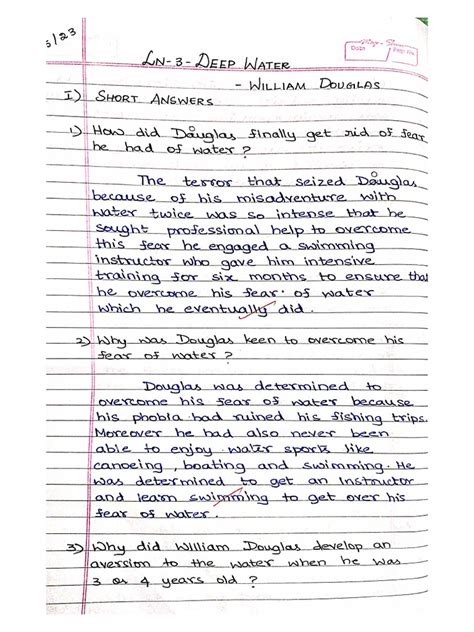 3/23
Date
Page No.
LN-3-DEEP WATER
- WILLIAM DOUGLAS
I) SHORT ANSWERS
1) How did Douglas finally get rid of fear
he had of water?
The terror that seized Douglas
because of his misadventure with
water twice was so intense that he
sought professional help to overcome
this fear he engaged a swimming
instructor who gave him intensive
training for six months to ensure that
he overcome his fear of water
which he eventually did.
2) Why was Douglas keen to overcome his
fear of water?
Douglas was determined to
overcome his fear of water because
his phobia had ruined his fishing trips.
Moreover he had also never been
able to enjoy water sports like
canoeing, boating and swimming. He
was determined to get an instructor
and learn swimming to get over his
fear of water.
3) Why did William Douglas develop an
aversion to the water when he was
3 or 4 years old?